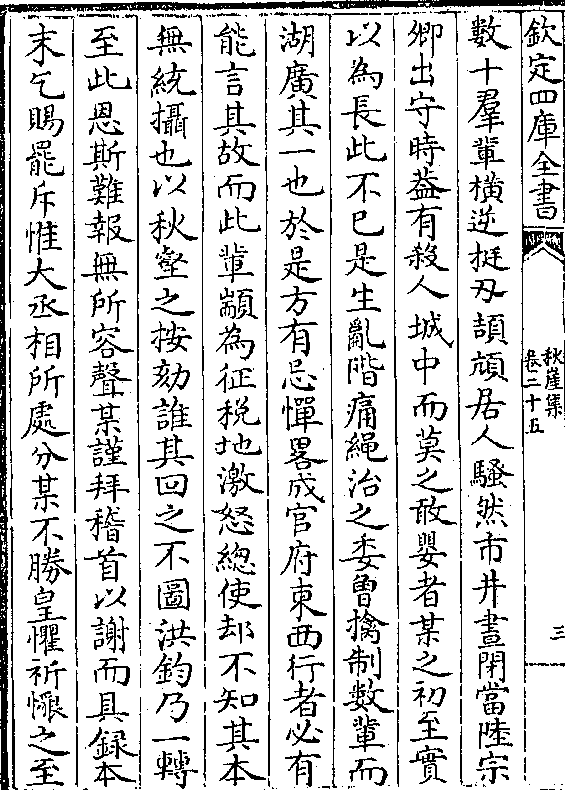 欽定四庫全書
秋崖集
卷二十五
三
數十羣輩橫逆挺刃頡頏居人騷然市井晝閉當陸宗
卿出守時葢有殺人城中而莫之敢嬰者某之初至實
以為長此不已是生亂階痛繩治之委曾擒制數輩而
湖廣其一也於是方有忌憚畧成官府東西行者必有
能言其故而此輩顓為征税地激怒總使却不知其本
無統攝也以秋壑之按劾誰其回之不圖洪鈞乃一轉
至此恩斯難報無所容聲某謹拜稽首以謝而具録本
末乞賜罷斥惟大丞相所處分某不勝皇懼祈懷之至